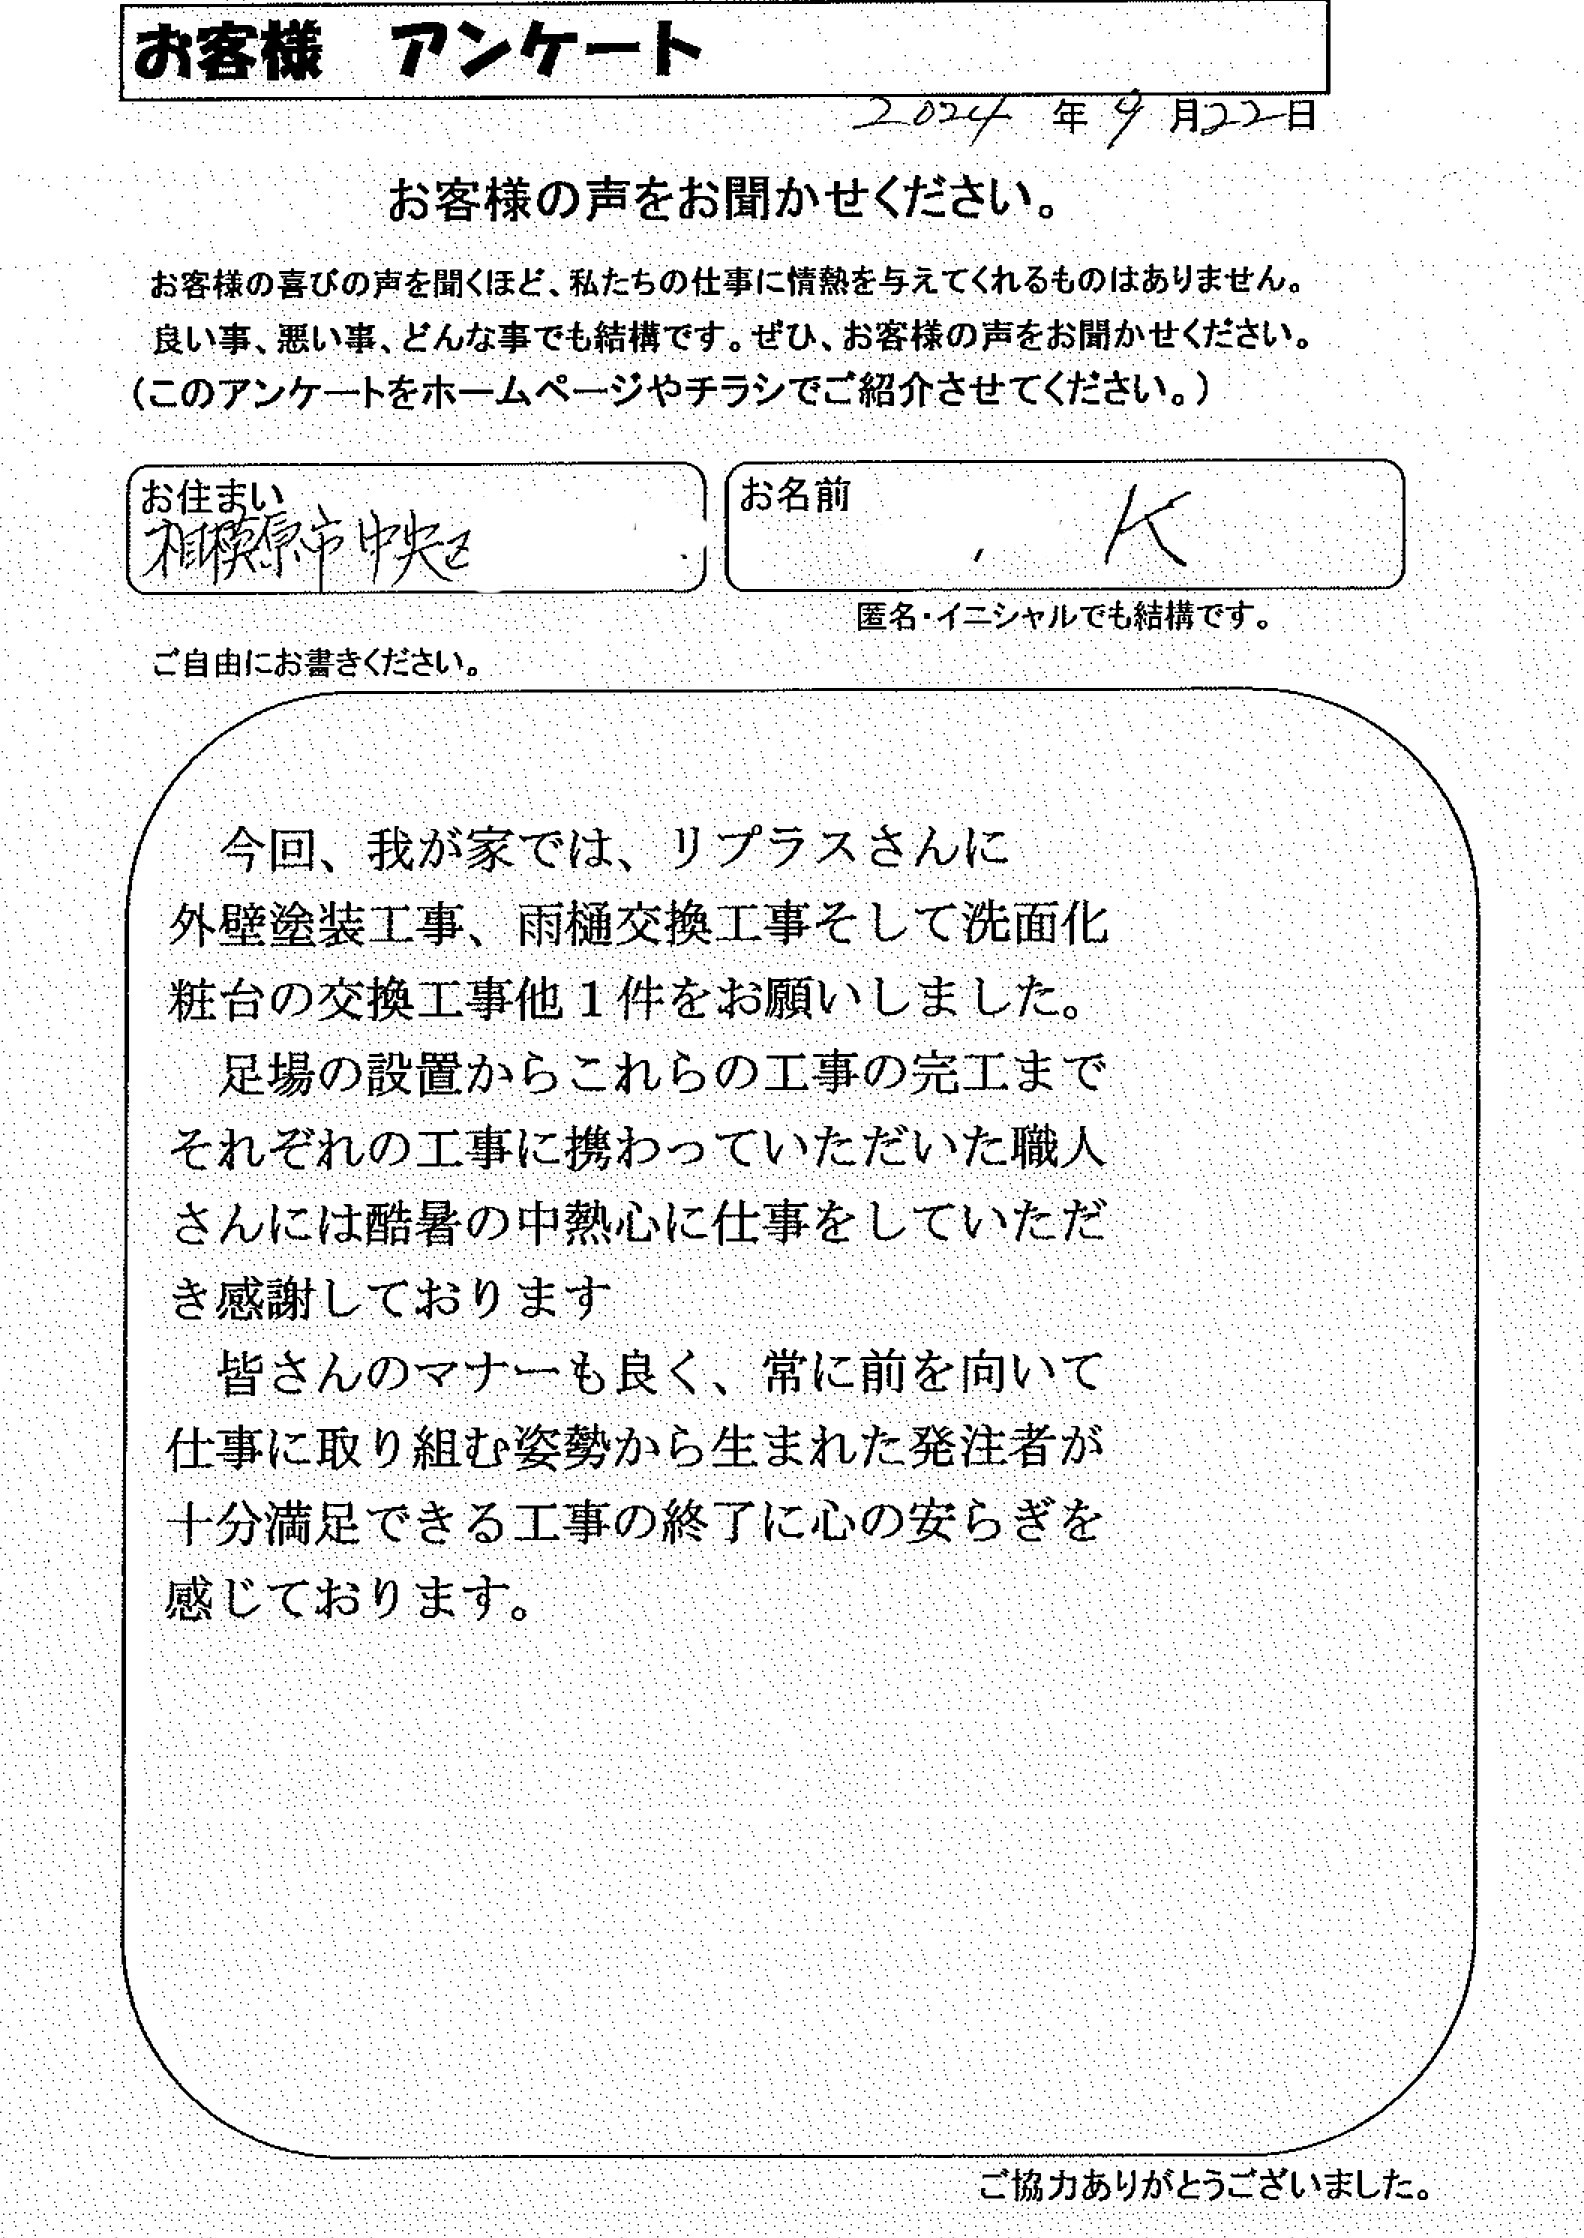 お客様　アンケート
2024年9月22日
お客様の声をお聞かせください。
お客様の喜びの声を聞くほど、私たちの仕事に情熱を与えてくれるものはありません。
良い事、悪い事、どんな事でも結構です。ぜひ、お客様の声をお聞かせください。
（このアンケートをホームページやチラシでご紹介させてください。）
お住まい
相模原市中央区
お名前
K
匿名・イニシャルでも結構です。
ご自由にお書きください。
今回、我が家では、リプラスさんに
外壁塗装工事、雨樋交換工事そして洗面化
粧台の交換工事他１件をお願いしました。
足場の設置からこれらの工事の完工まで
それぞれの工事に携わっていただいた職人
さんには酷暑の中熱心に仕事をしていただ
き感謝しております
皆さんのマナーも良く、常に前を向いて
仕事に取り組む姿勢から生まれた発注者が
十分満足できる工事の終了に心の安らぎを
感じております。
ご協力ありがとうございました。